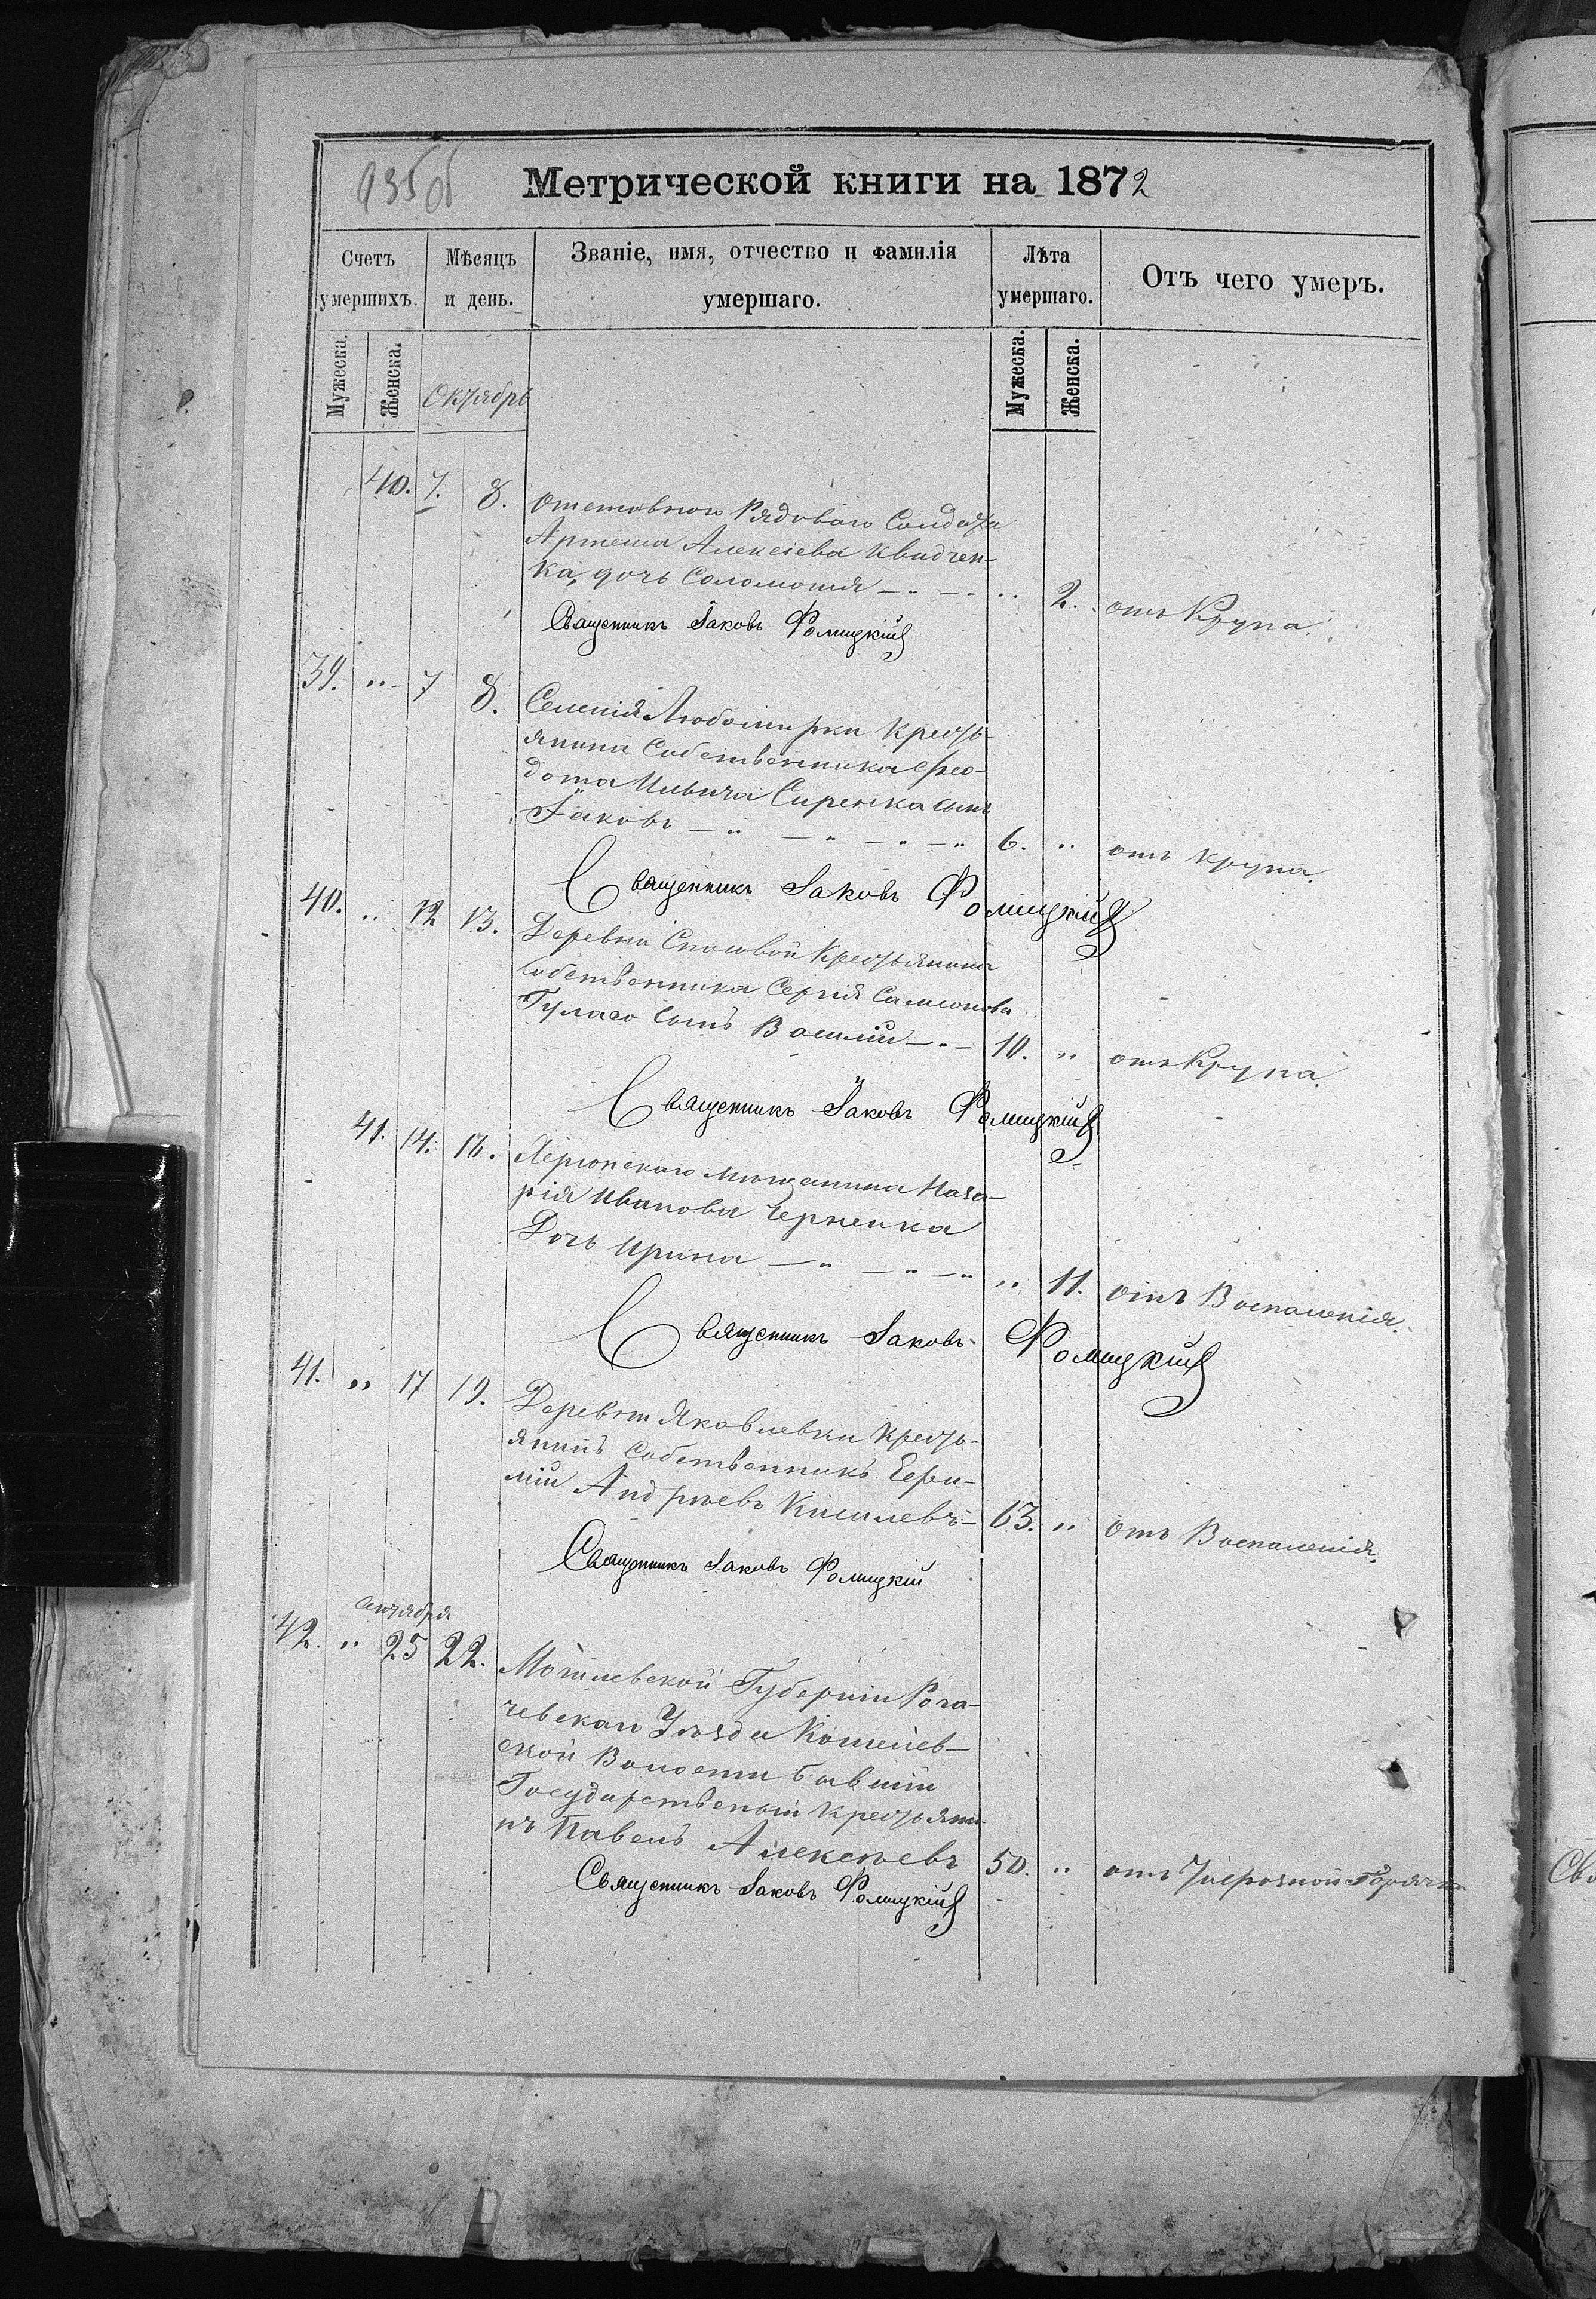 935об
Метрической книги на 1872
Счетъ умершихъ.
Мѣсяцъ и день.
Званіе, имя, отчество и фамилія умершаго.
Лѣта умершаго.
Отъ чего умеръ.
Мужеска.
Женска.
Октябрь
Мужеска.
Женска.
40. 7. 8. Отставного Рядоваго Солдата
Артема Алексіева Квидчен-
ка, дочь Соломонія — " — " " 2. отъ Крупа.
Священникъ Іаковъ Фомицкій
39. " 7 8. Селенія Любомирки Кресть-
янина Собственника Фео-
дота Ильича Сиренка сынъ
Іаковъ — " — " — " — " 6. " отъ крупа.
Священникъ Іаковъ Фомицкій
40. " 12 13. Деревни Спасовой Крестьянина
собственника Сергія Самсонова
Гулаго сынъ Василій — " — 10. " отъ Крупа.
Священникъ Іаковъ Фомицкій
41. 14. 16. Херсонскаго мещанина Наза-
рія Иванова Черненка
Дочь Ирина — " — " — " " 11. отъ Воспаленія.
Священникъ Іаковъ Фомицкій
41. " 17 19. Деревни Яковлевки Кресть-
янинъ Собственникъ Ефи-
мій Андреевъ Киселевъ — 63. " отъ Воспаленія.
Священникъ Іаковъ Фомицкій
октября
42. " 25 22. Могилевской Губерніи Рога-
чевскаго Уѣзда Кошелев-
ской Волости бывшій
Государственый Крестьяни
нъ Павелъ Алексѣевъ 50. " отъ
Священникъ Іаковъ Фомицкій
Св